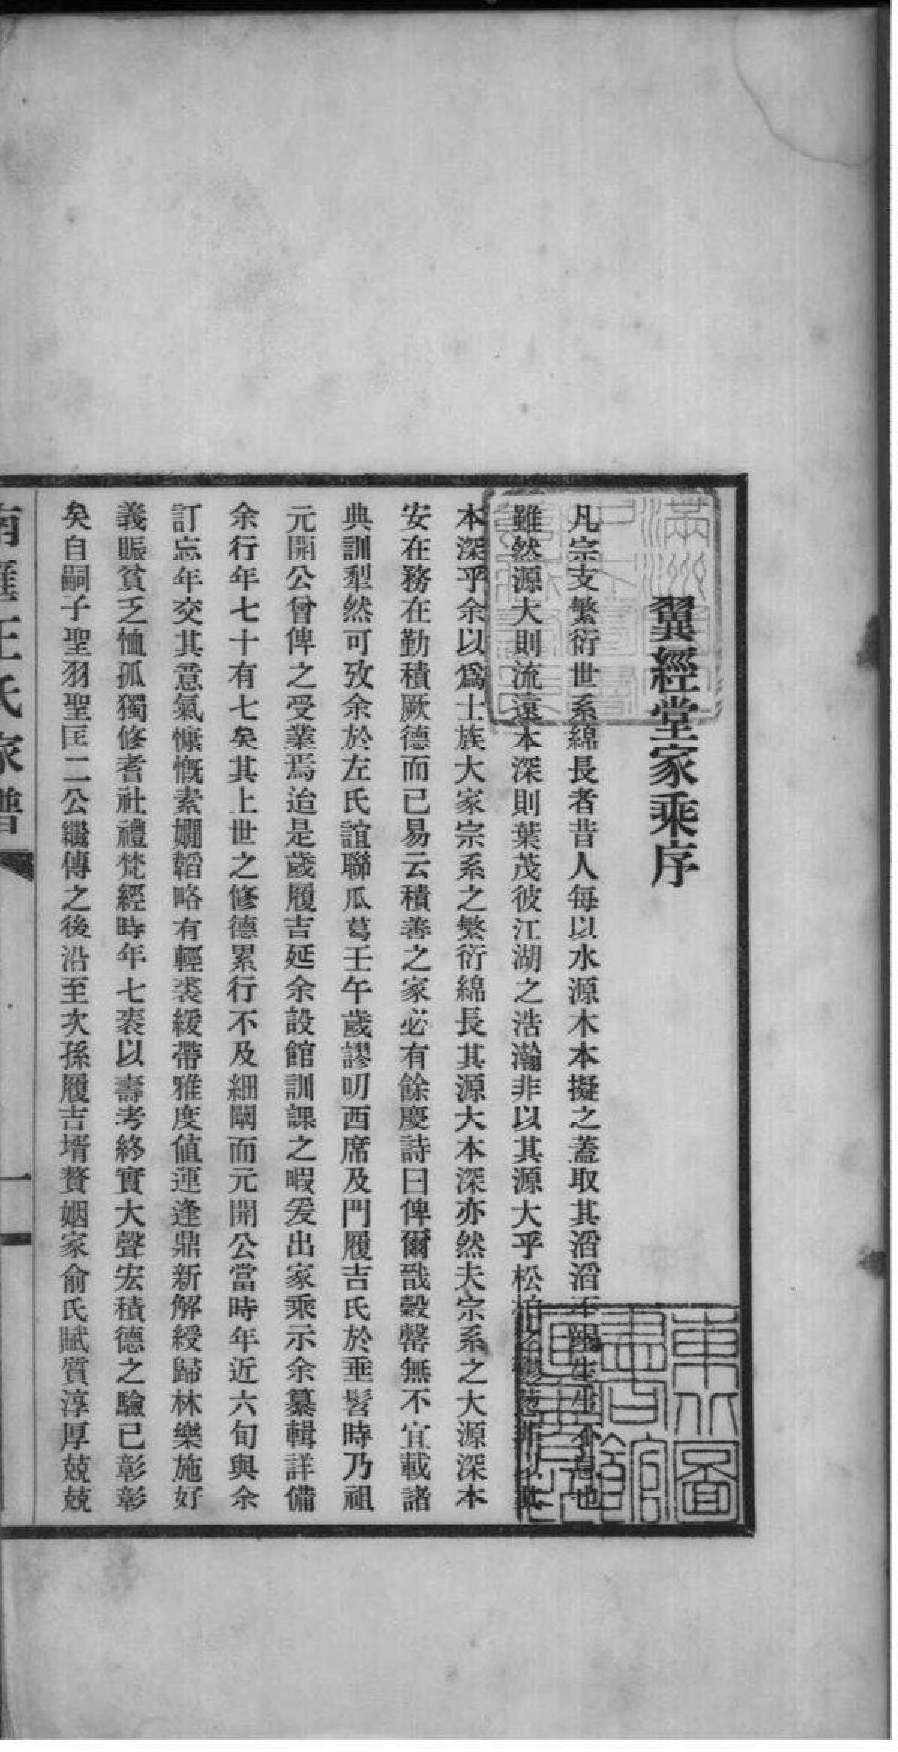 翼經堂家乘序
凡宗支繁衍世系綿長者昔人每以水源木本擬之蓋取其滔滔不竭生生不息也
雖然源大則流遠本深則葉茂彼江湖之浩瀚非以其源大乎松柏之鬱葱非以其
本深乎余以爲士族大家宗系之繁衍綿長其源大本深亦然夫宗系之大源深本
安在務在勤積厥德而已易云積善之家必有餘慶詩曰俾爾戩穀罄無不宜載諸
典訓犁然可攷余於左氏誼聯瓜葛壬午歲謬叨西席及門履吉氏於垂髫時乃祖
元開公曾俾之受業焉迨是歲履吉延余設館訓課之暇爰出家乘示余纂輯詳備
余行年七十有七矣其上世之修德累行不及細闡而元開公當時年近六旬與余
訂忘年交其意氣慷慨素嫻韜略有輕裘緩帶雅度値運逢鼎新解綬歸林樂施好
義賑貧乏恤孤獨修耆社禮梵經時年七袠以壽考終實大聲宏積德之驗已彰彰
矣自嗣子聖羽聖匡二公繼傳之後沿至次孫履吉壻贅姻家俞氏賦質淳厚兢兢
王氏家譜
一
東北圖
書館